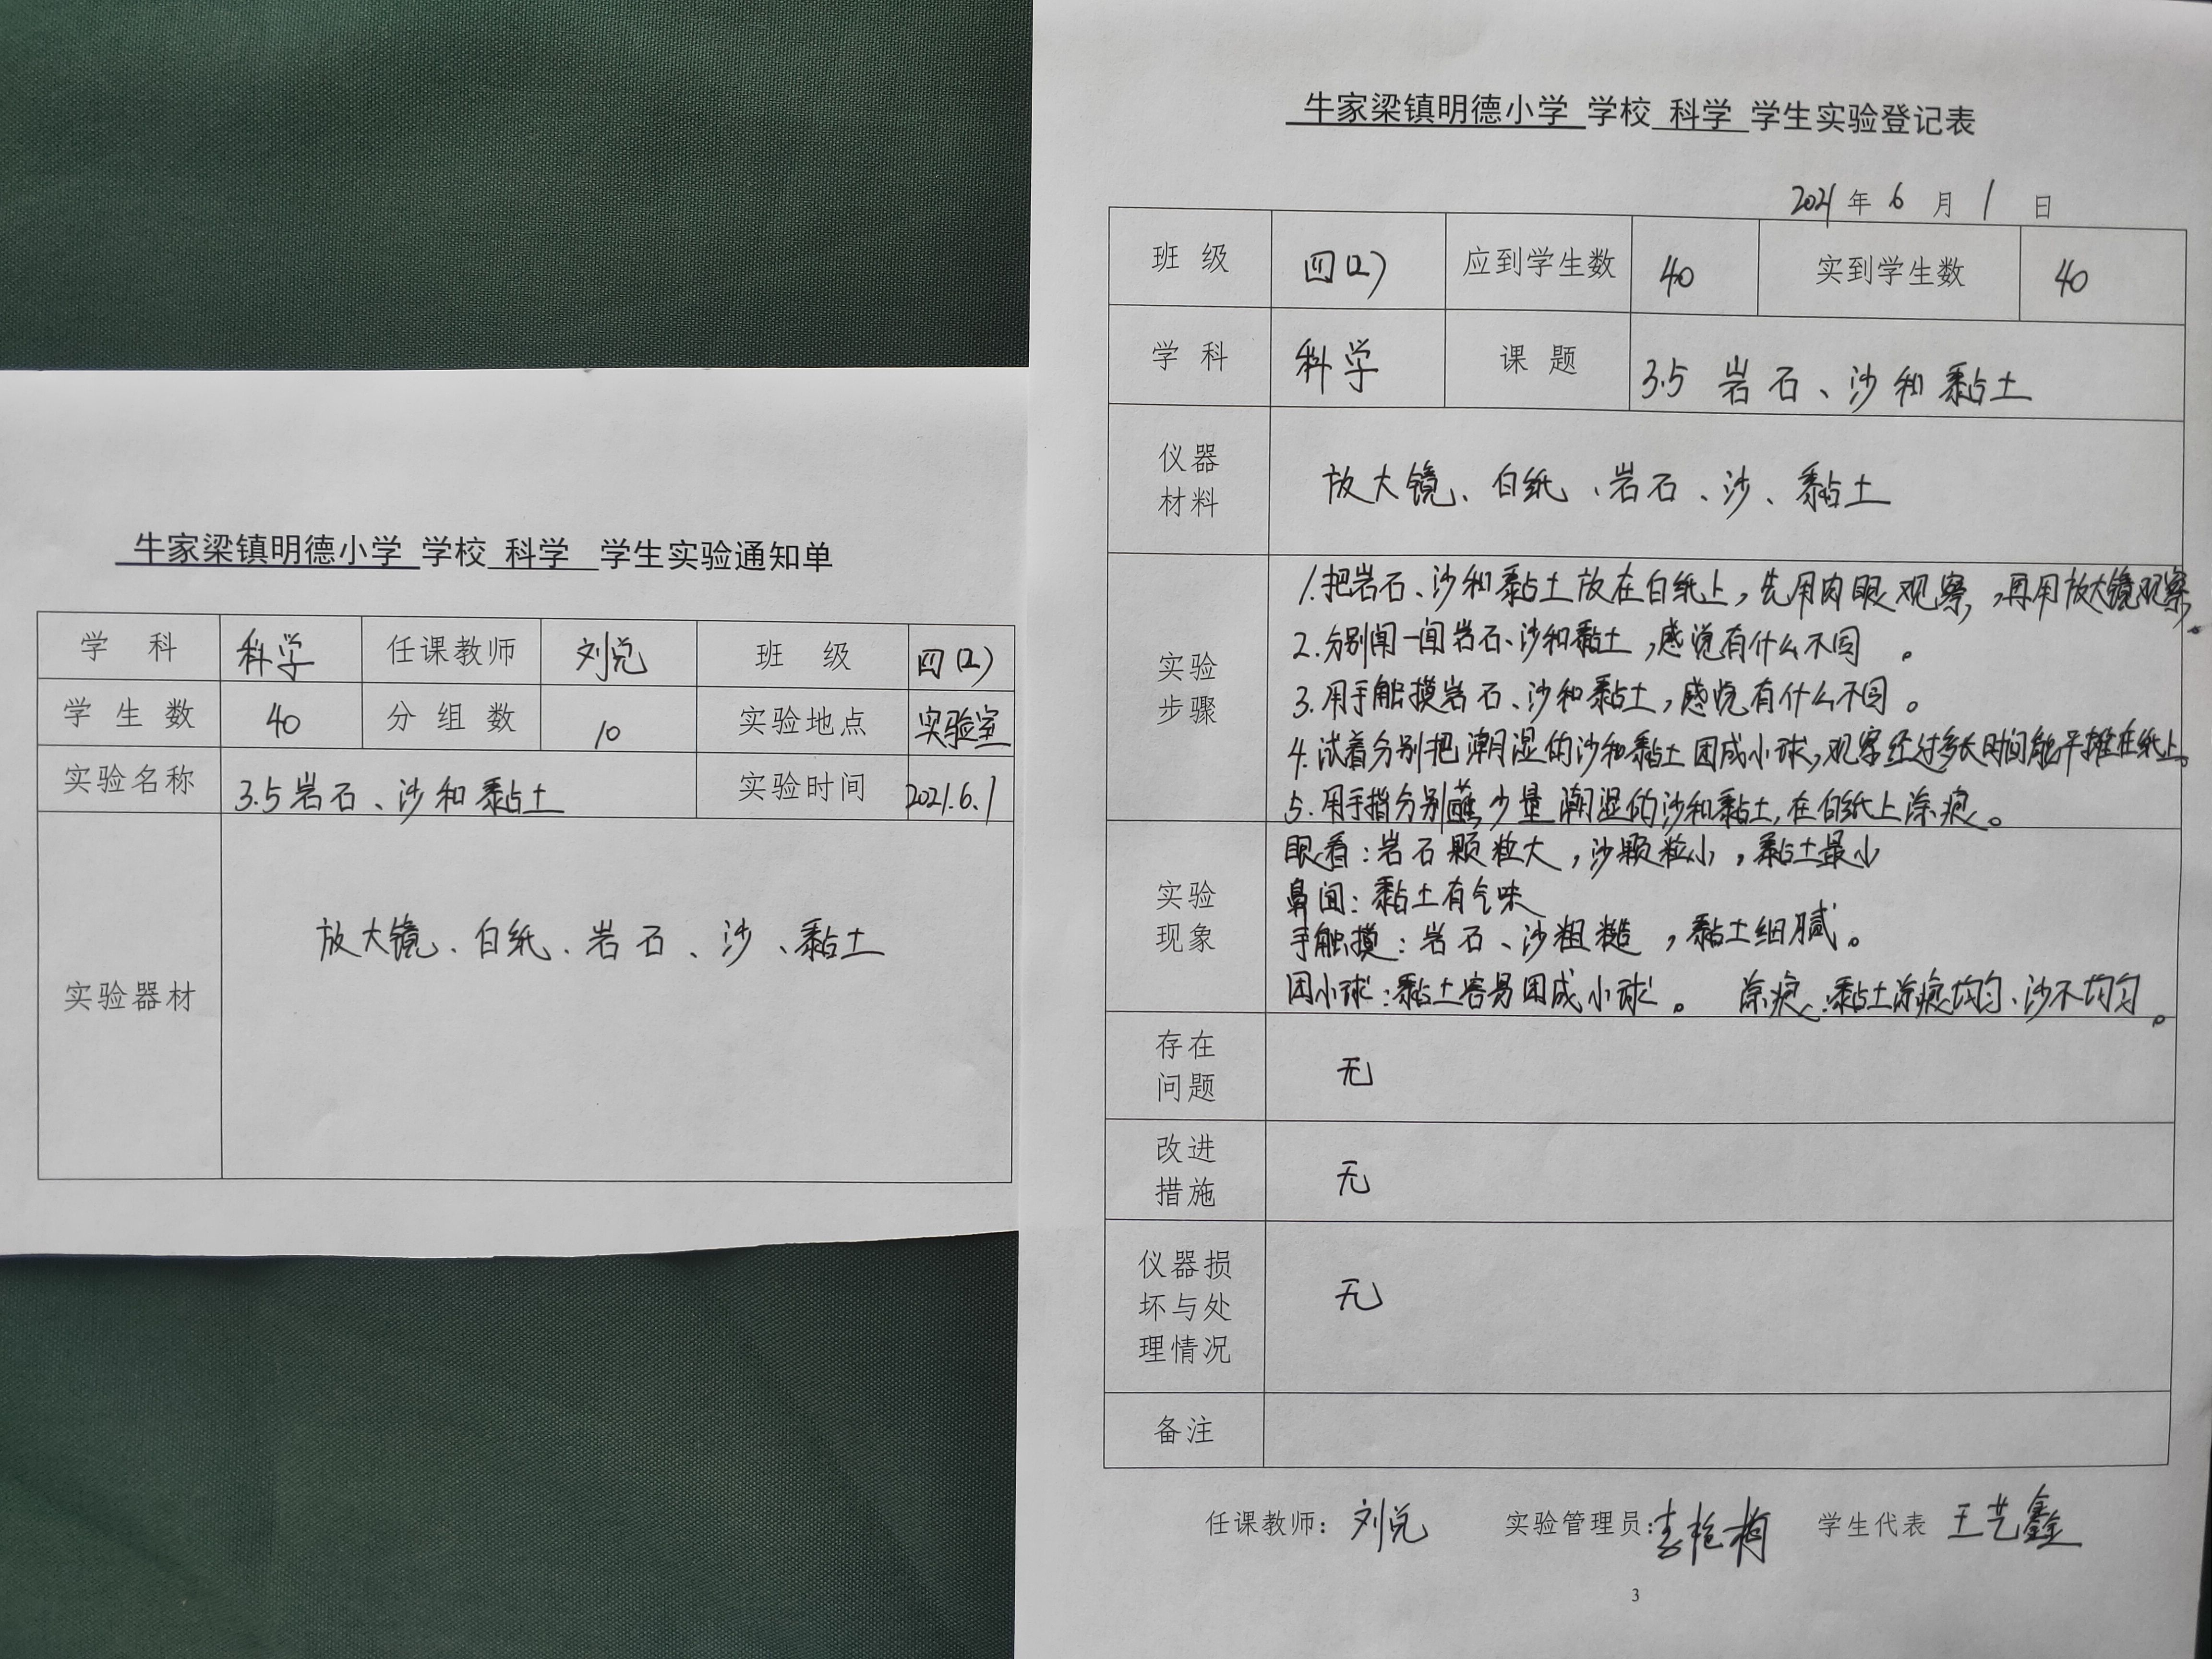 牛家梁镇明德小学 学校 科学 学生实验通知单
学 科 科学 任课教师 刘兑 班 级 四(2)
学 生 数 40 分 组 数 10 实验地点 实验室
实验名称 3.5岩石、沙和黏土 实验时间 2021.6.1
实验器材 放大镜、白纸、岩石、沙、黏土
牛家梁镇明德小学 学校 科学 学生实验登记表
2021 年 6 月 1 日
班 级 四(2) 应到学生数 40 实到学生数 40
学 科 科学 课 题 3.5 岩石、沙和黏土
仪器
材料
放大镜、白纸、岩石、沙、黏土
实验
步骤
1.把岩石、沙和黏土放在白纸上,先用肉眼观察,再用放大镜观察。
2.分别闻一闻岩石、沙和黏土,感觉有什么不同。
3.用手触摸岩石、沙和黏土,感觉有什么不同。
4.试着分别把潮湿的沙和黏土团成小球,观察经过多长时间能平摊在纸上。
5.用手指分别蘸少量潮湿的沙和黏土,在白纸上涂痕。
实验
现象
眼看:岩石颗粒大,沙颗粒小,黏土最小
鼻闻:黏土有气味
手触摸:岩石、沙粗糙,黏土细腻。
团小球:黏土容易团成小球。 涂痕:黏土涂痕均匀、沙不均匀。
存在
问题
无
改进
措施
无
仪器损
坏与处
理情况
无
备注
任课教师: 刘兑 实验管理员: 李艳梅 学生代表 王艺鑫
3